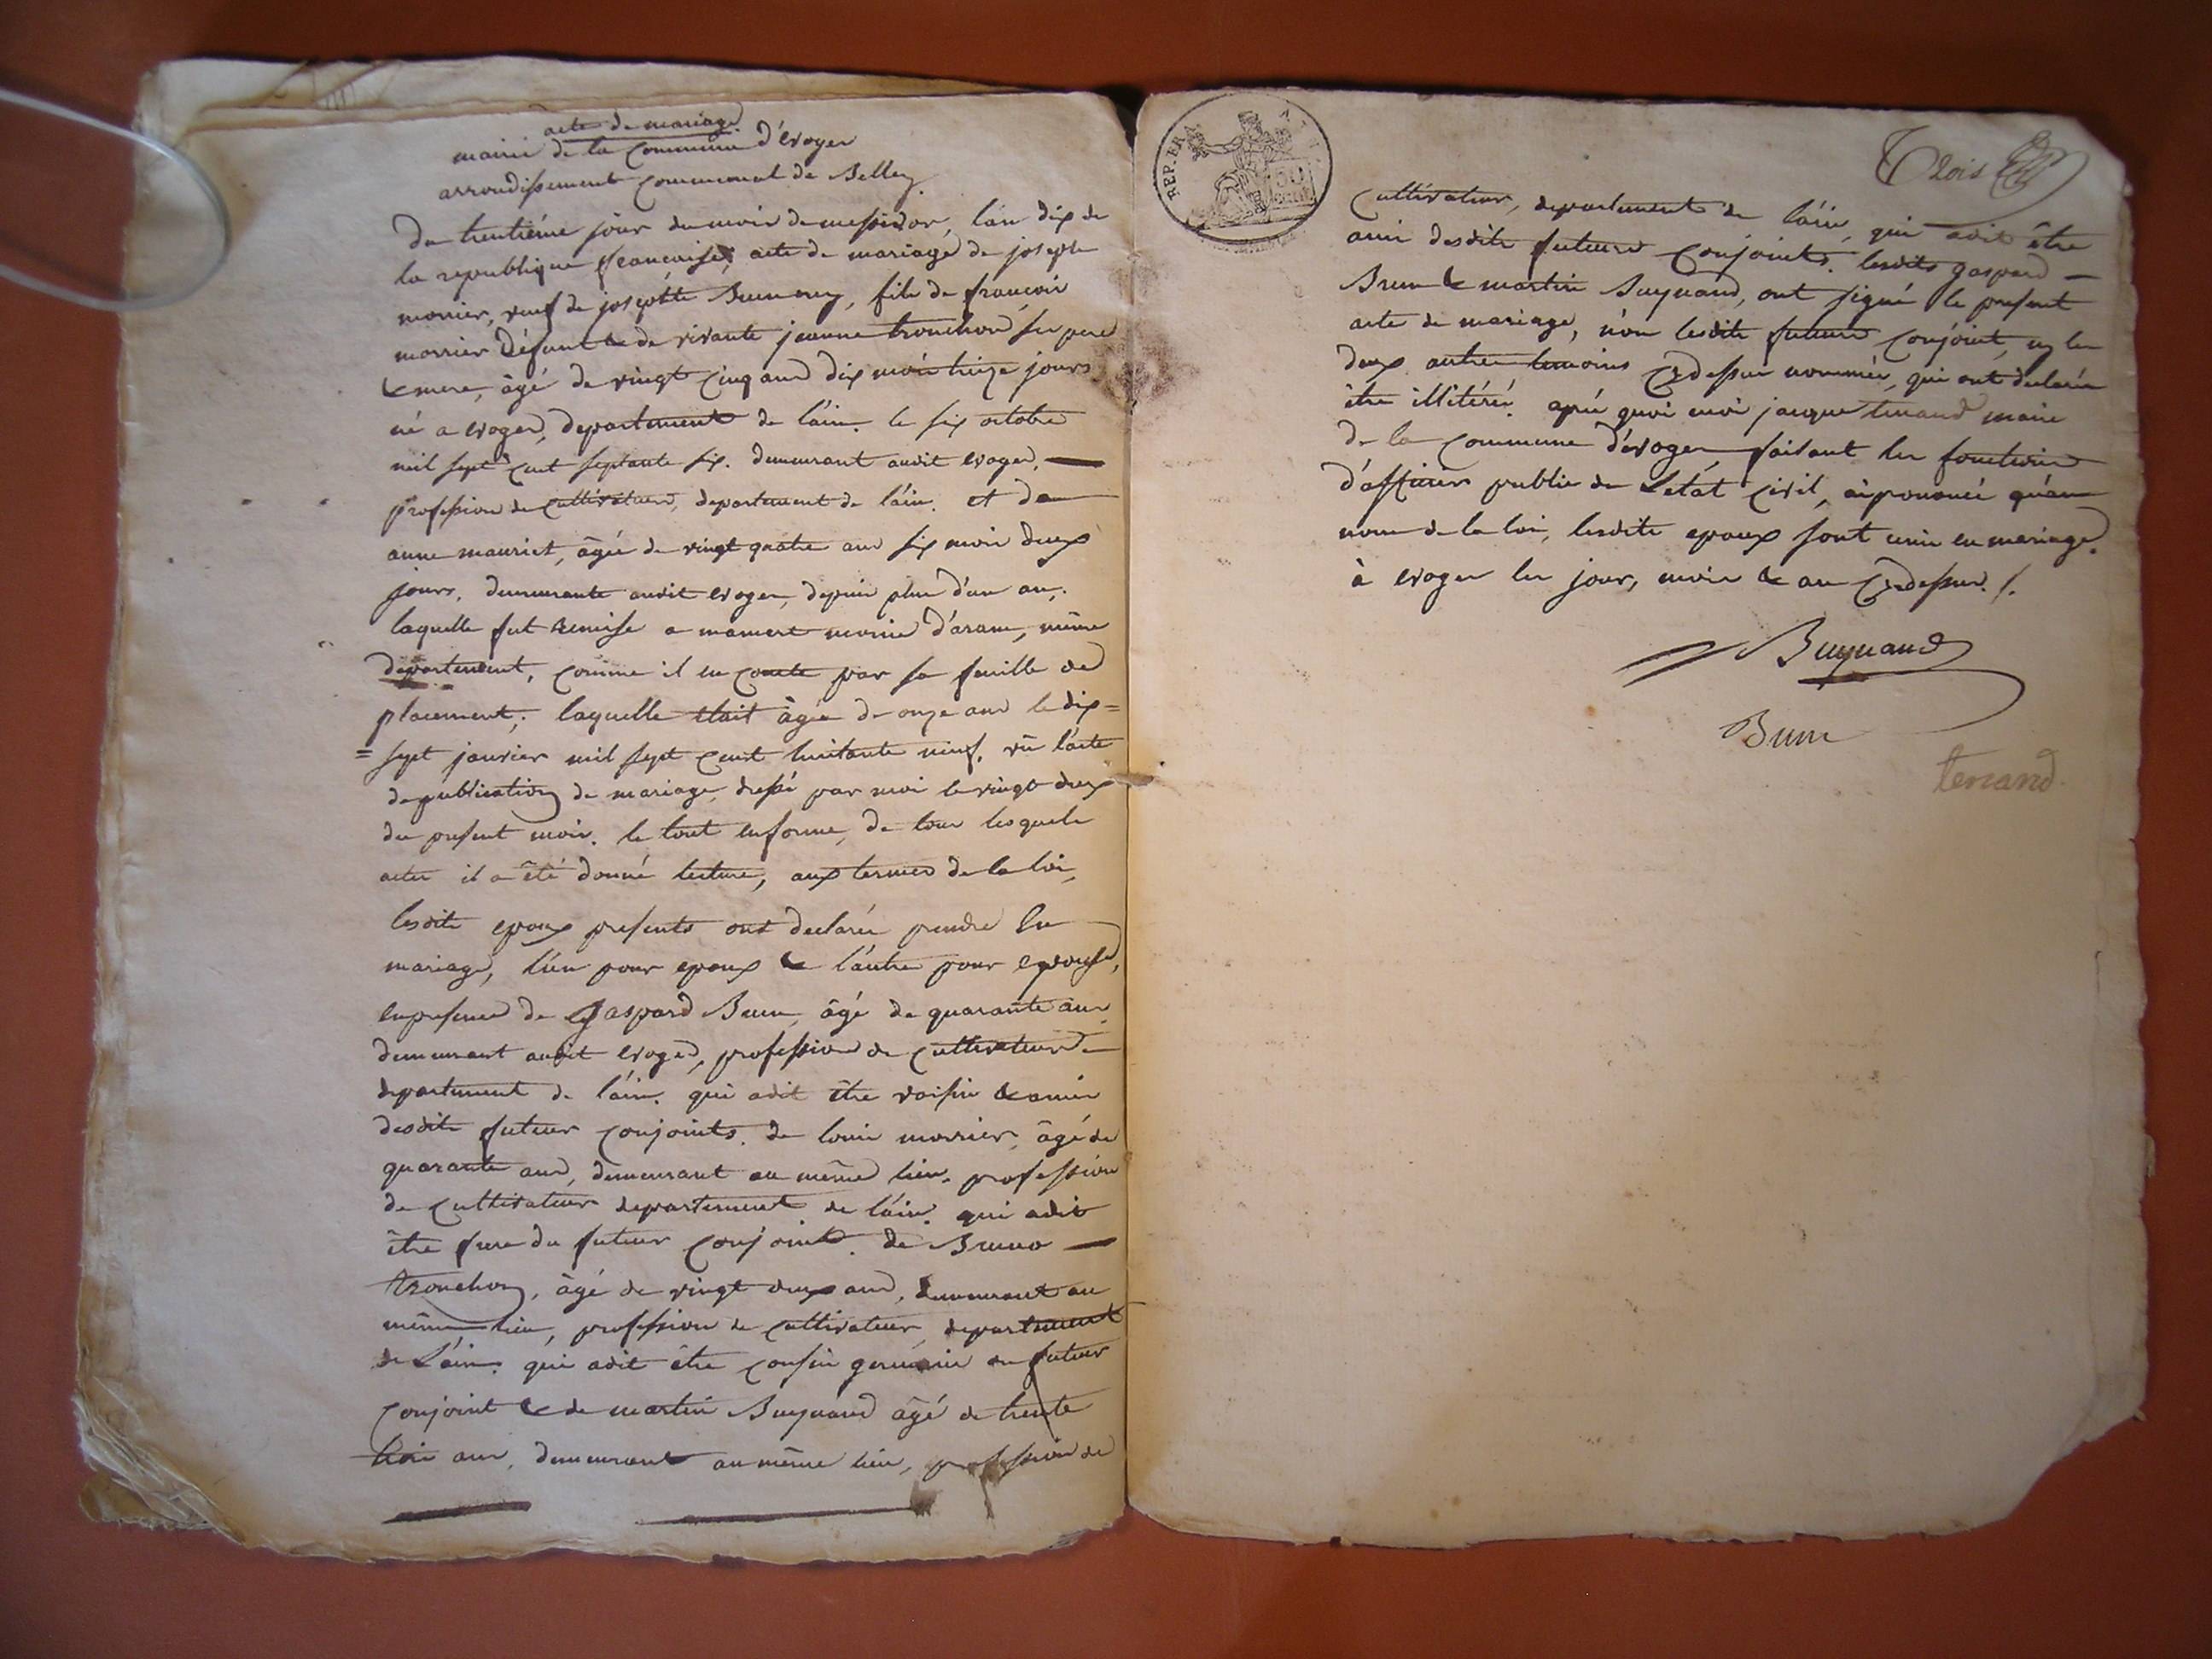 acte de mariage
mairie de la Commune d'Evoges
arrondissement Communal de Belley.
du trentième jour du mois de messidor, l'an dix de
la republique francaise, acte de mariage de joseph
monier, veuf de josephte, fils de francois
monier défunt & de vivante jeanne tronchon ses pere
& mere, âgé de vingt cinq ans dix mois treize jours
né a evoges, departement de l'ain. le six octobre
mil sept cent septante six. demeurant audit evoges,
profession de cultivateur, departement de l'ain. et de
anne mauriet, âgée de vingt quatre ans six mois deux
jours, demeurante audit evoges, depuis plus d'un an,
laquelle fut remise a mamert monié d'arane, même
departement, comme il en conste par sa feuille de
placement; laquelle était âgée de onze ans le dix=
=sept janvier mil sept cent huitante neuf. vû l'acte
de publication de mariage, dressé par moi le vingt deux
du present mois. le tout en forme, de tous lesquels
actes il a été donné lecture, aux termes de la loi,
lesdits epoux presents ont declarés prendre En
mariage, l'un pour epoux & l'autre pour epouse,
en presence de Gaspard Brun, âgé de quarante ans
demeurant audit evoges, profession de cultivateur
departement de l'ain. qui a dit être voisin & amis
desdits futeurs conjoints. de louis monier, âgé de
quarante ans, demeurant au même lieu, profession
de cultivateur departement de l'ain. qui a dit
être frere du futeur conjoint. de Bruno
tronchon, âgé de vingt deux ans, demeurant au
même lieu, profession de cultivateur, departement
de L'ain. qui a dit être cousin germain du futeur
conjoint & de martin Buynand âgé de trente
trois ans, demeurant au même lieu, profession de
REP. FRA
50
Trois
cultivateur, departement de l'ain, qui a dit être
ami desdits futeurs conjoints. lesdits gaspard
Brun & martin Buynand, ont signé le present
acte de mariage, non lesdits futeurs conjoint, ny les
deux autres temoins cy dessus nommés, qui ont declarés
être illitérés. après quoi moi jacque tenand maire
de la commune d'evoges faisant les fonctions
d'officier public de L'etat civil, ai prononcé qu'au
nom de la loi, lesdits epoux sont unis en mariage.
à evoges les jour, mois & an cy dessus./.
Buynand
Brun
tenand